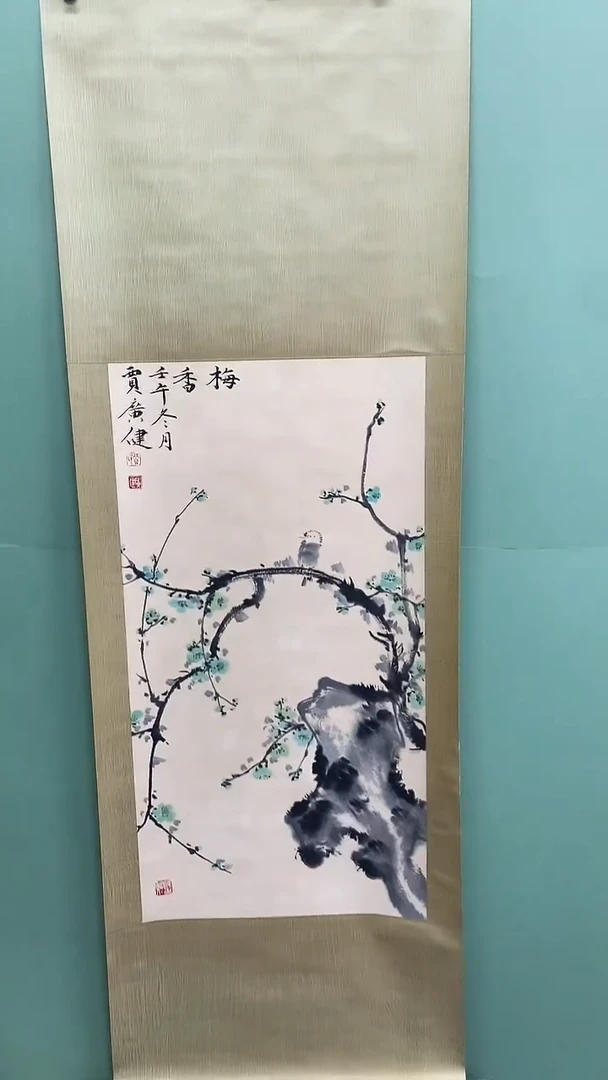 梅
香
壬午冬月
賈廣健